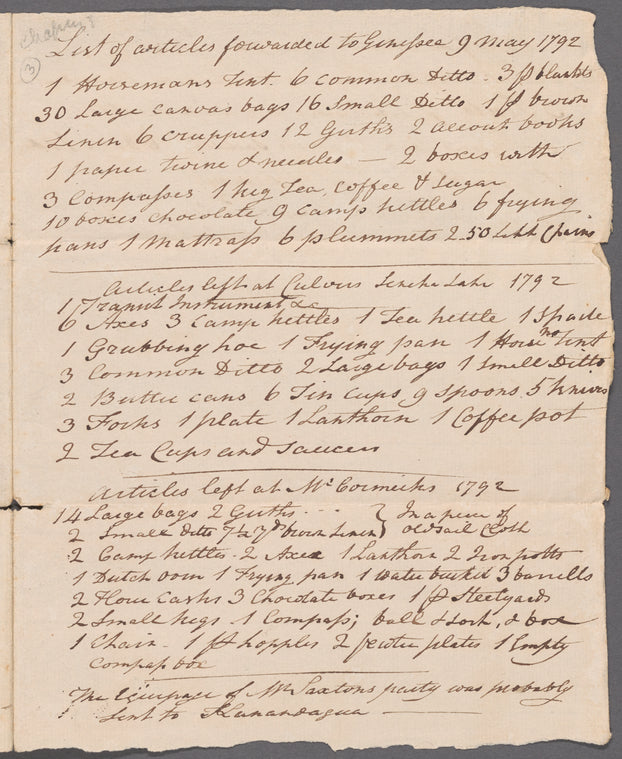 Chapin's
3
List of articles forwarded to Genesee 9 May 1792
1 Horsemans Tent. 6 common Ditto. 3 pr blankts
30 Large canvas bags 16 Small Ditto 1 ps brown
Linen 6 cruppers 12 Girths 2 accout books
1 paper twine & needles — 2 boxes with
3 Compasses 1 keg Tea, Coffee & Sugar
10 boxes Chocolate 9 camp kettles 6 frying
pans 1 Mattrass 6 plummets 2-50 Link Chains
Articles left at Culvers Seneka Lake 1792
1 Transit Instrument &c
6 Axes 3 Camp kettles 1 Tea kettle 1 Spade
1 Grubbing hoe 1 Frying pan 1 Horse mns Tent
3 Common Ditto 2 Large bags 1 Small Ditto
2 Butter cans 6 Tin Cups 9 Spoons 5 knives
3 Forks 1 plate 1 Lanthorn 1 Coffee pot
2 Tea Cups and Saucers
Articles left at Mc Cormicks 1792
14 Large bags 2 Girths - - - } In a piece of
2 Small Ditto 7½ yds brown Linen } old sail Cloth
2 Camp kettles 2 Axes 1 Lanthorn 2 Iron potts
1 Dutch oven 1 Frying pan 1 water bucket 3 barrells
2 Flour Casks 3 Chocolate boxes 1 pr Steelyards
2 Small kegs 1 Compass; ball & Sock, & box
1 Chain - 1 pr hopples 2 pewter plates 1 Empty
Compass box
The Equipage of Mr Saxtons party was probably
sent to Kanandagua —